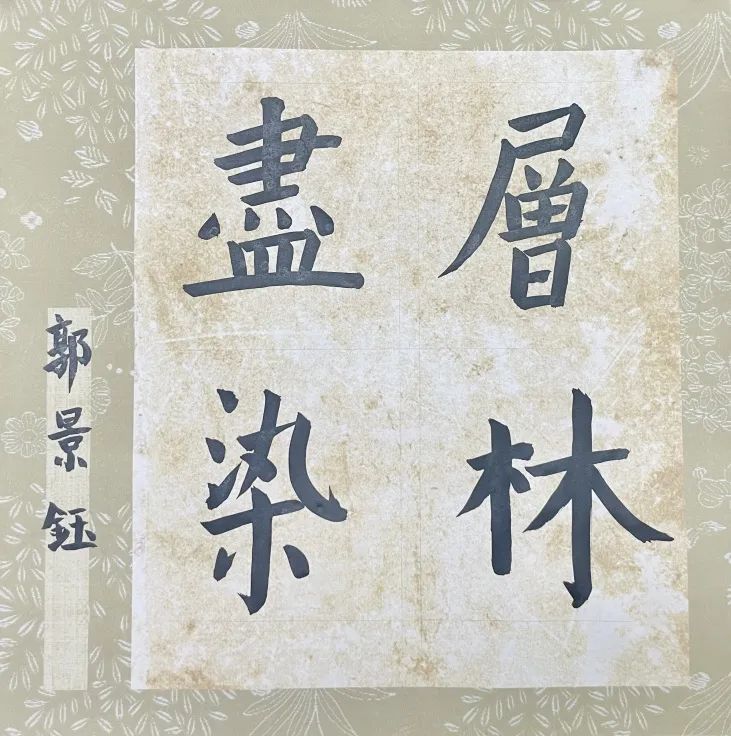 層林
盡染
郭景鈺